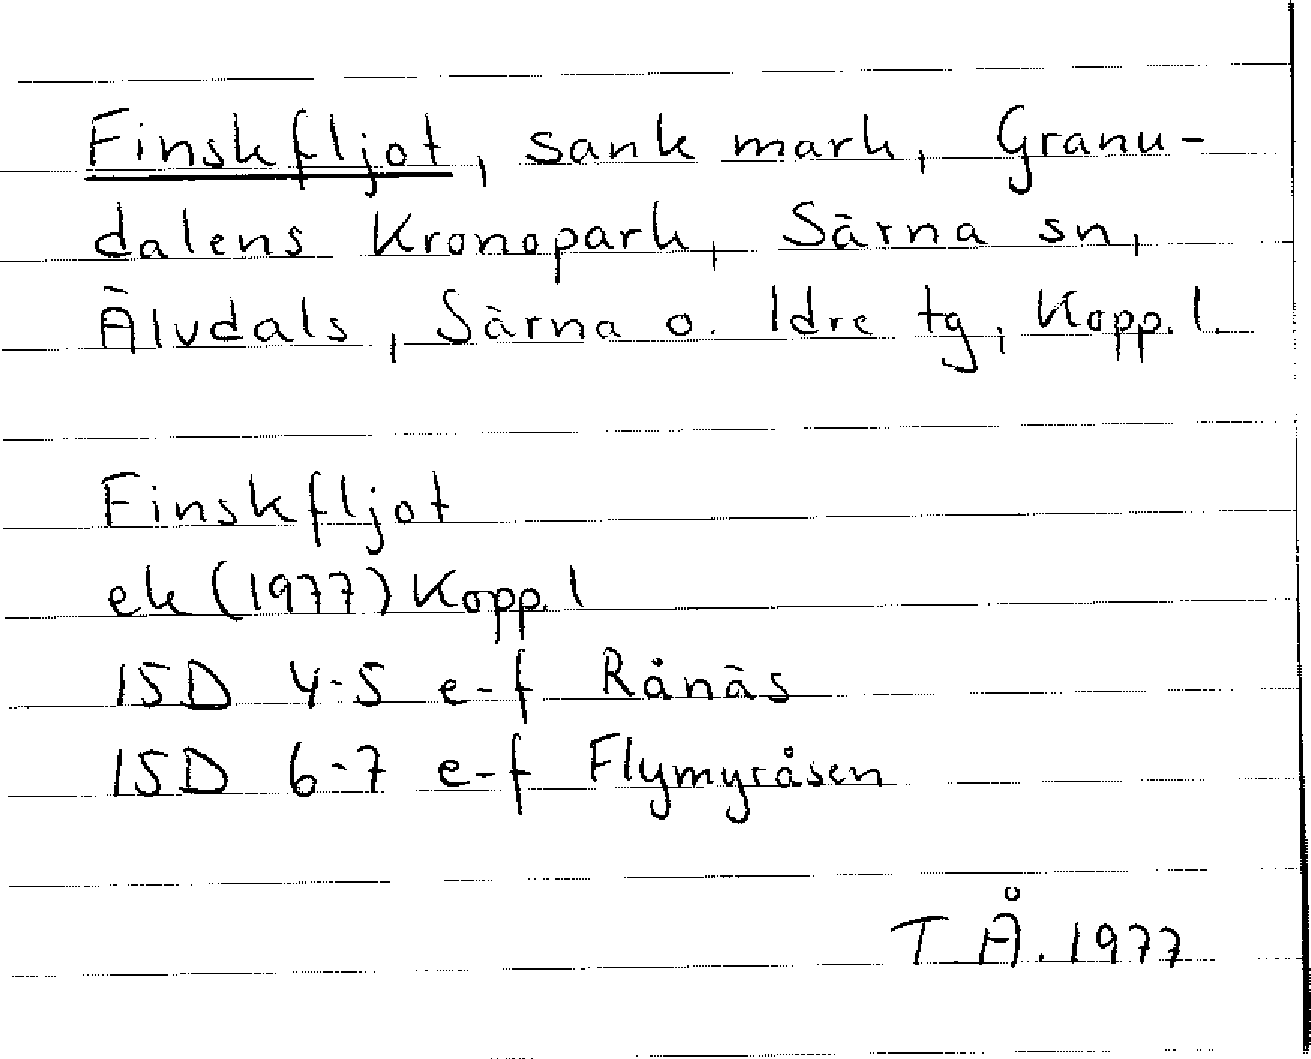 Finskfljot, sank mark, Granu-
dalens Kronopark, Särna sn,
Älvdals, Särna o. Idre tg, Kopp. l.
Finskfljot
ek (1977) Kopp. l
15D 4-5 e-f Rånäs
15D 6-7 e-f Flymyråsen
T Å. 1977